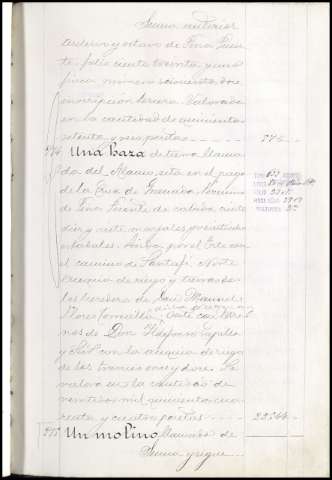 Suma anterior
tercero y octavo de Pino Puen-
te, folio ciento treinta y uno
finca número seiscientos doce
inscripción tercera. Valorada
en la cantidad de quinientas
setenta y seis pesetas 576..
274 Una haza de tierra llama-
da del Alamo, sita en el pago
de la Cruz de Granada, término
de Pino Puente, de cabida ciento
diez y siete marjales
Linda: por el Este con
el camino de Santafé; Norte
acequia de riego y tierras de
los herederos de Don Manuel
Flores dicha acequia
Oeste con tier-
nos de Don
y Sur con la acequia de riego
de las trances once y doce. Se
valora en la cantidad de
veintidos mil quinientas cua-
renta y cuatro pesetas 22544..
275 Un molino llamado de
Suma y sigue